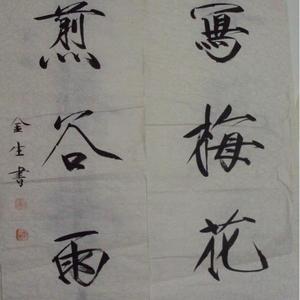 寫梅花
煎谷雨
金生書